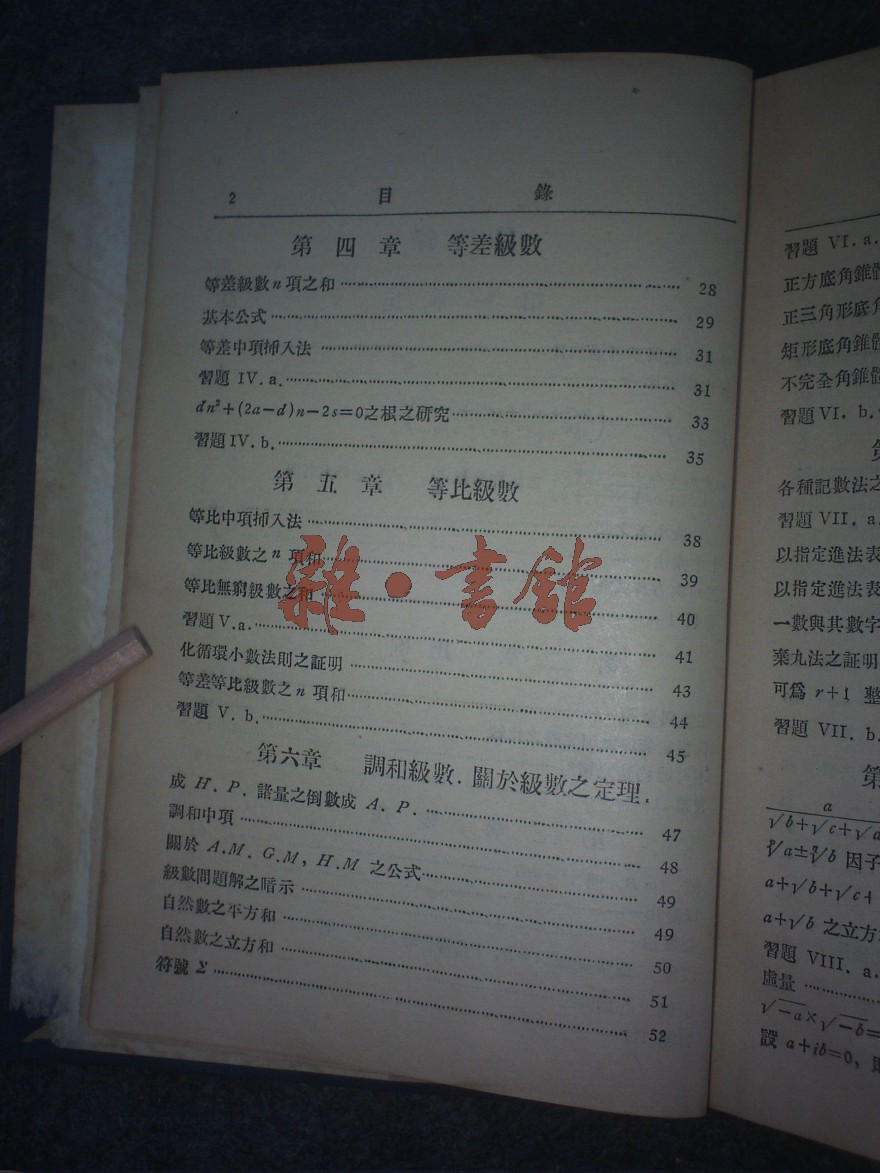 2 目 錄
第 四 章 等差級數
等差級數 n 項之和 28
基本公式 29
等差中項揷入法 31
習題 IV. a. 31
dn²+(2a−d)n−2s=0之根之研究 33
習題 IV. b. 35
第 五 章 等比級數
等比中項揷入法 38
等比級數之 n 項和 39
等比無窮級數之和 40
習題 V.a. 41
化循環小數法則之証明 43
等差等比級數之 n 項和 44
習題 V. b. 45
第六章 調和級數．關於級數之定理．
成 H. P. 諸量之倒數成 A. P. 47
調和中項 48
關於 A.M. G.M, H.M 之公式 49
級數問題解之暗示 49
自然數之平方和 50
自然數之立方和 51
符號 Σ 52
雜·書館
習題 VI. a.
正方底角錐
正三角形底
矩形底角錐
不完全角錐
習題 VI. b.
各種記數法之
習題 VII. a.
以指定進法表
以指定進法表
一數與其數字
棄九法之証明
可爲 r+1 整
習題 VII. b.
a
√b+√c+√
a±b 因子
a+√b+√c+
a+√b 之立方
習題 VIII. a.
虛量
√−a×√−b=
設 a+ib=0,